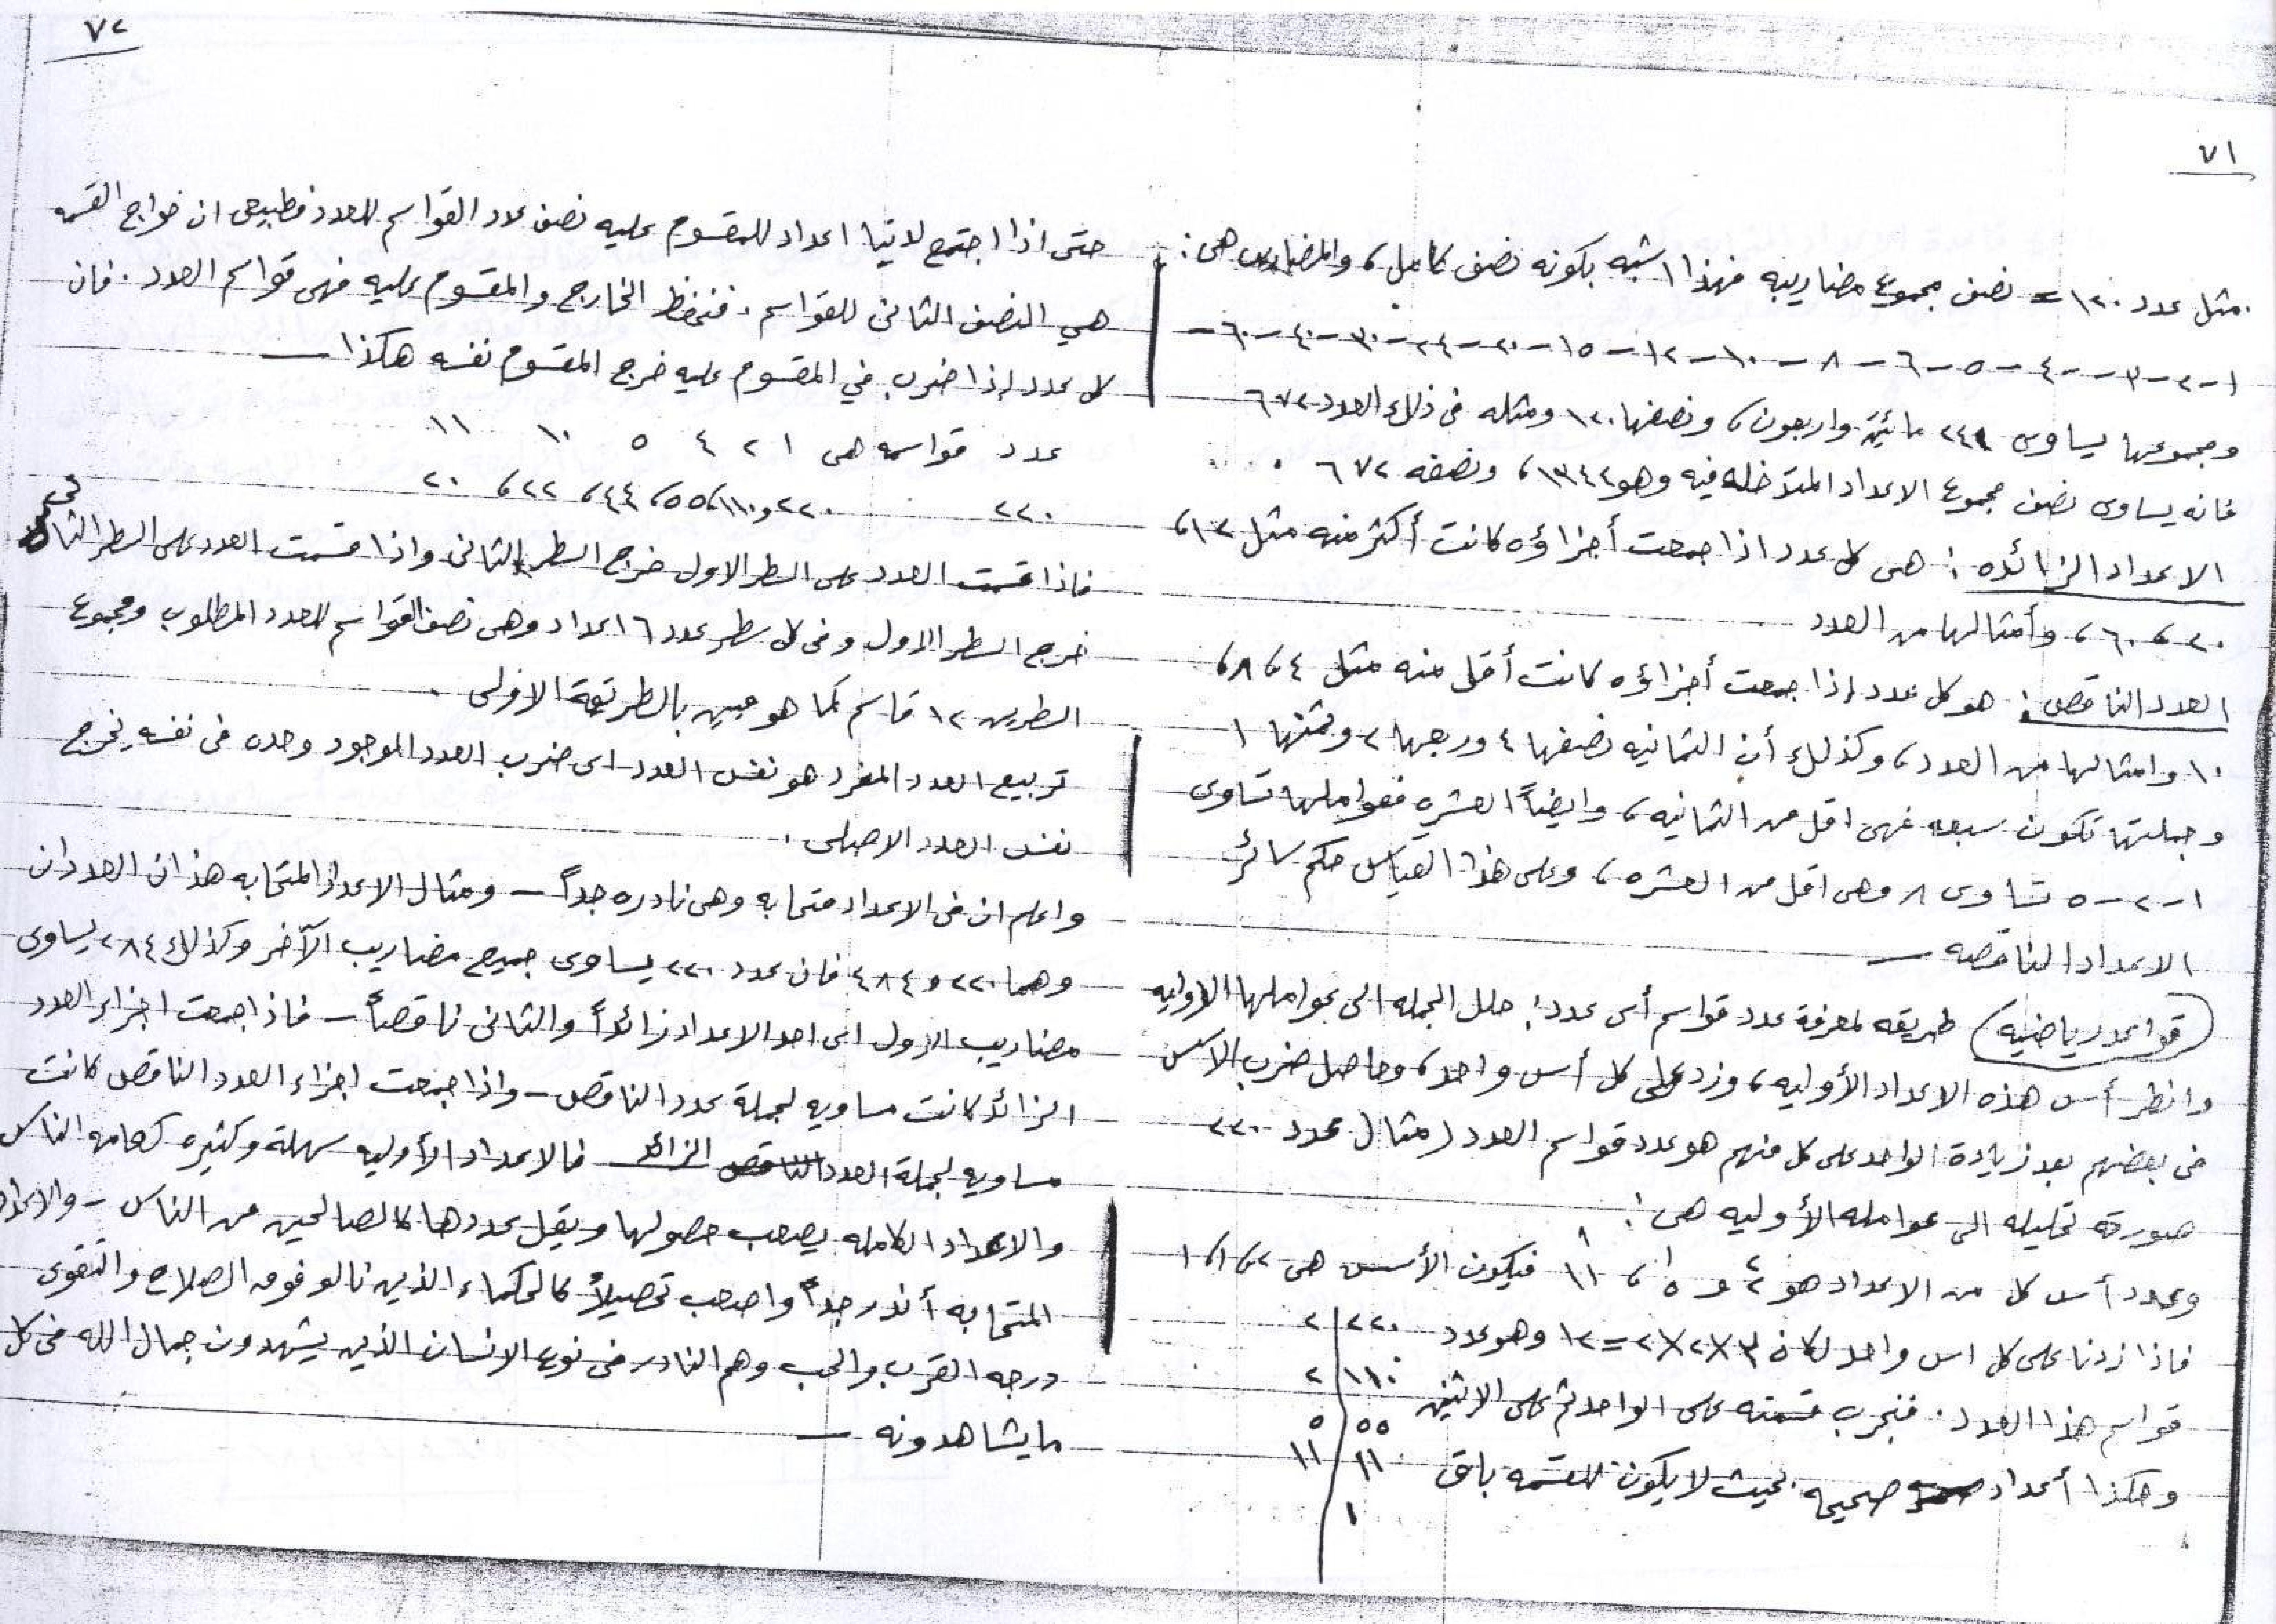 ٧١
مثل عدد ١٢٠ = نصف مجموع مضاريبه فهذا اشبه بكونه نصف كامل، والمضاريب هى:
١-٢-٣-٤-٥-٦-٨-١٠-١٢-١٥-٢٠-٢٤-٣٠-٤٠-٦٠-
ومجموعها يساوى ٢٤٠ مائتين واربعون، ونصفها ١٢٠ ومثله فى ذلك العدد ٦٧٢
فانه يساوى نصف مجموع الاعداد المتداخله فيه وهو ١٣٤٤، ونصفه ٦٧٢.
الاعداد الزائده: هى كل عدد اذا جمعت أجزاؤه كانت أكثر منه مثل ١٢،
٢٠، ٦٠، وأمثالها من العدد
العدد الناقص: هو كل عدد إذا جمعت أجزاؤه كانت أقل منه مثل ٤، ٨،
١٠ وامثالها من العدد، وكذلك أن الثمانيه نصفها ٤ وربعها ٢ وثمنها ١
وجملتها تكون سبعه فهى اقل من الثمانيه، وايضاً العشره فعواملها تساوى
١-٢-٥ تساوى ٨ وهى اقل من العشره، وعلى هذا القياس حكم سائر
الاعداد الناقصه —
(قواعد رياضيه) طريقه لمعرفة عدد قواسم أى عدد: حلل الجمله الى عواملها الأوليه
وانظر أس هذه الاعداد الأوليه، وزد على كل أس واحد، وحاصل ضرب الأسس
فى بعضهم بعد زيادة الواحد على كل منهم هو عدد قواسم العدد (مثال) عدد ٢٢٠
صورة تحليله الى عوامله الأوليه هى:
وعدد أس كل من الاعداد هو ٢² و ٥¹، ١١¹ فيكون الأسس هى ٢، ١، ١
فاذا زدنا على كل اس واحد لكان ٣×٢×٢=١٢ وهو عدد
قواسم هذا العدد. فنجرب قسمته على الواحد ثم على الاثنين
وهكذا أعداد صحيحه بحيث لا يكون للقسمه باق
٢٢٠ | ٢
١١٠ | ٢
٥٥ | ٥
١١ | ١١
١
٧٢
حتى اذا اجتمع لدينا اعداد للمقسوم عليه نصف عدد القواسم للعدد فطبيعى ان خوارج القسمه
هي النصف الثانى للقواسم. فنحفظ الخارج والمقسوم عليه فهى قواسم العدد. فان
كل عدد إذا ضرب في المقسوم عليه خرج المقسوم نفسه هكذا —
عدد قواسمه هى ١ ٢ ٤ ٥ ١٠ ١١
٢٢٠ ٢٢٠ و١١٠، ٥٥، ٤٤، ٢٢، ٢٠
فاذا قسمت العدد على السطر الاول خرج السطر الثانى واذا قسمت العدد على السطر الثانى
خرج السطر الاول وفى كل سطر عدد ٦ اعداد وهى نصف القواسم للعدد المطلوب ومجموع
السطرين ١٢ قاسم كما هو مبين بالطريقة الاولى.
تربيع العدد المفرد هو نفس العدد اى ضرب العدد الموجود وحده فى نفسه يخرج
نفس العدد الاصلى.
واعلم ان فى الاعداد متحابه وهى نادره جداً — ومثال الاعداد المتحابه هذان العددان
وهما ٢٢٠ و ٤٨٤ فان عدد ٢٢٠ يساوى جميع مضاريب الآخر وكذلك ٢٨٤ يساوى
مضاريب الاول اى احد الاعداد زائداً والثانى ناقصاً — فاذا جمعت اجزاء العدد
الزائد كانت مساويه لجملة عدد الناقص — واذا جمعت اجزاء العدد الناقص كانت
مساويه لجملة العدد الزائد فالاعداد الأوليه سهلة وكثيره كعامه الناس
والاعداد الكامله يصعب حصولها ويقل عددها كالصالحين من الناس — والاعداد
المتحابه أندر جداً واصعب تحصيلاً كالحكماء الذين نالوا فوق الصلاح والتقوى
درجه القرب والحب وهم النادر فى نوع الانسان الذين يشهدون جمال الله فى كل
ما يشاهدونه —